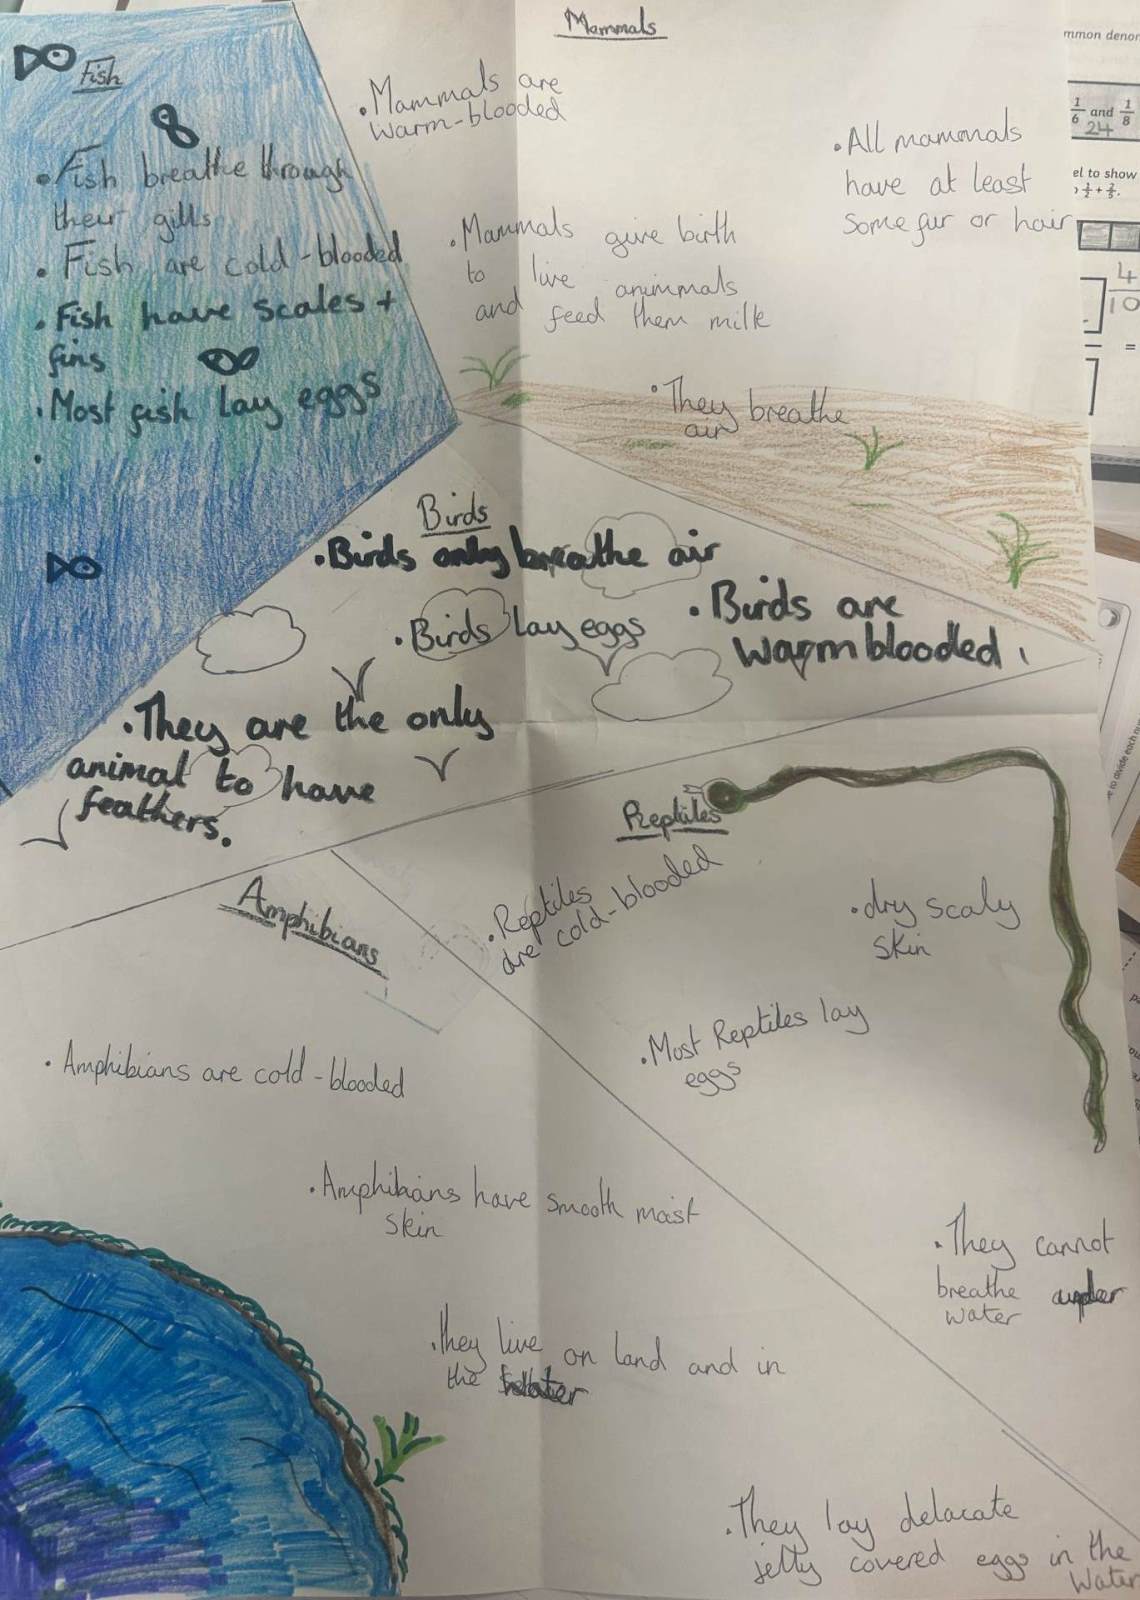 Fish
• Fish breathe through
their gills
• Fish are cold-blooded
• Fish have scales +
fins
• Most fish lay eggs
•
Mammals
• Mammals are
warm-blooded
• All mammals
have at least
some fur or hair
• Mammals give birth
to live animmals
and feed them milk
• They breathe
air
Birds
• Birds only breathe air
• Birds lay eggs
• Birds are
warm blooded
• They are the only
animal to have
feathers.
Reptiles
• Reptiles
are cold-blooded
• dry scaly
skin
• Most Reptiles lay
eggs
• They cannot
breathe under
water
Amphibians
• Amphibians are cold-blooded
• Amphibians have smooth moist
skin
• They live on land and in
the water
• They lay delacate
jelly covered eggs in the
water
mmon denor
1/6 and 1/8
24
el to show
1/2 + 2/5.
4/10
=
e to divide each